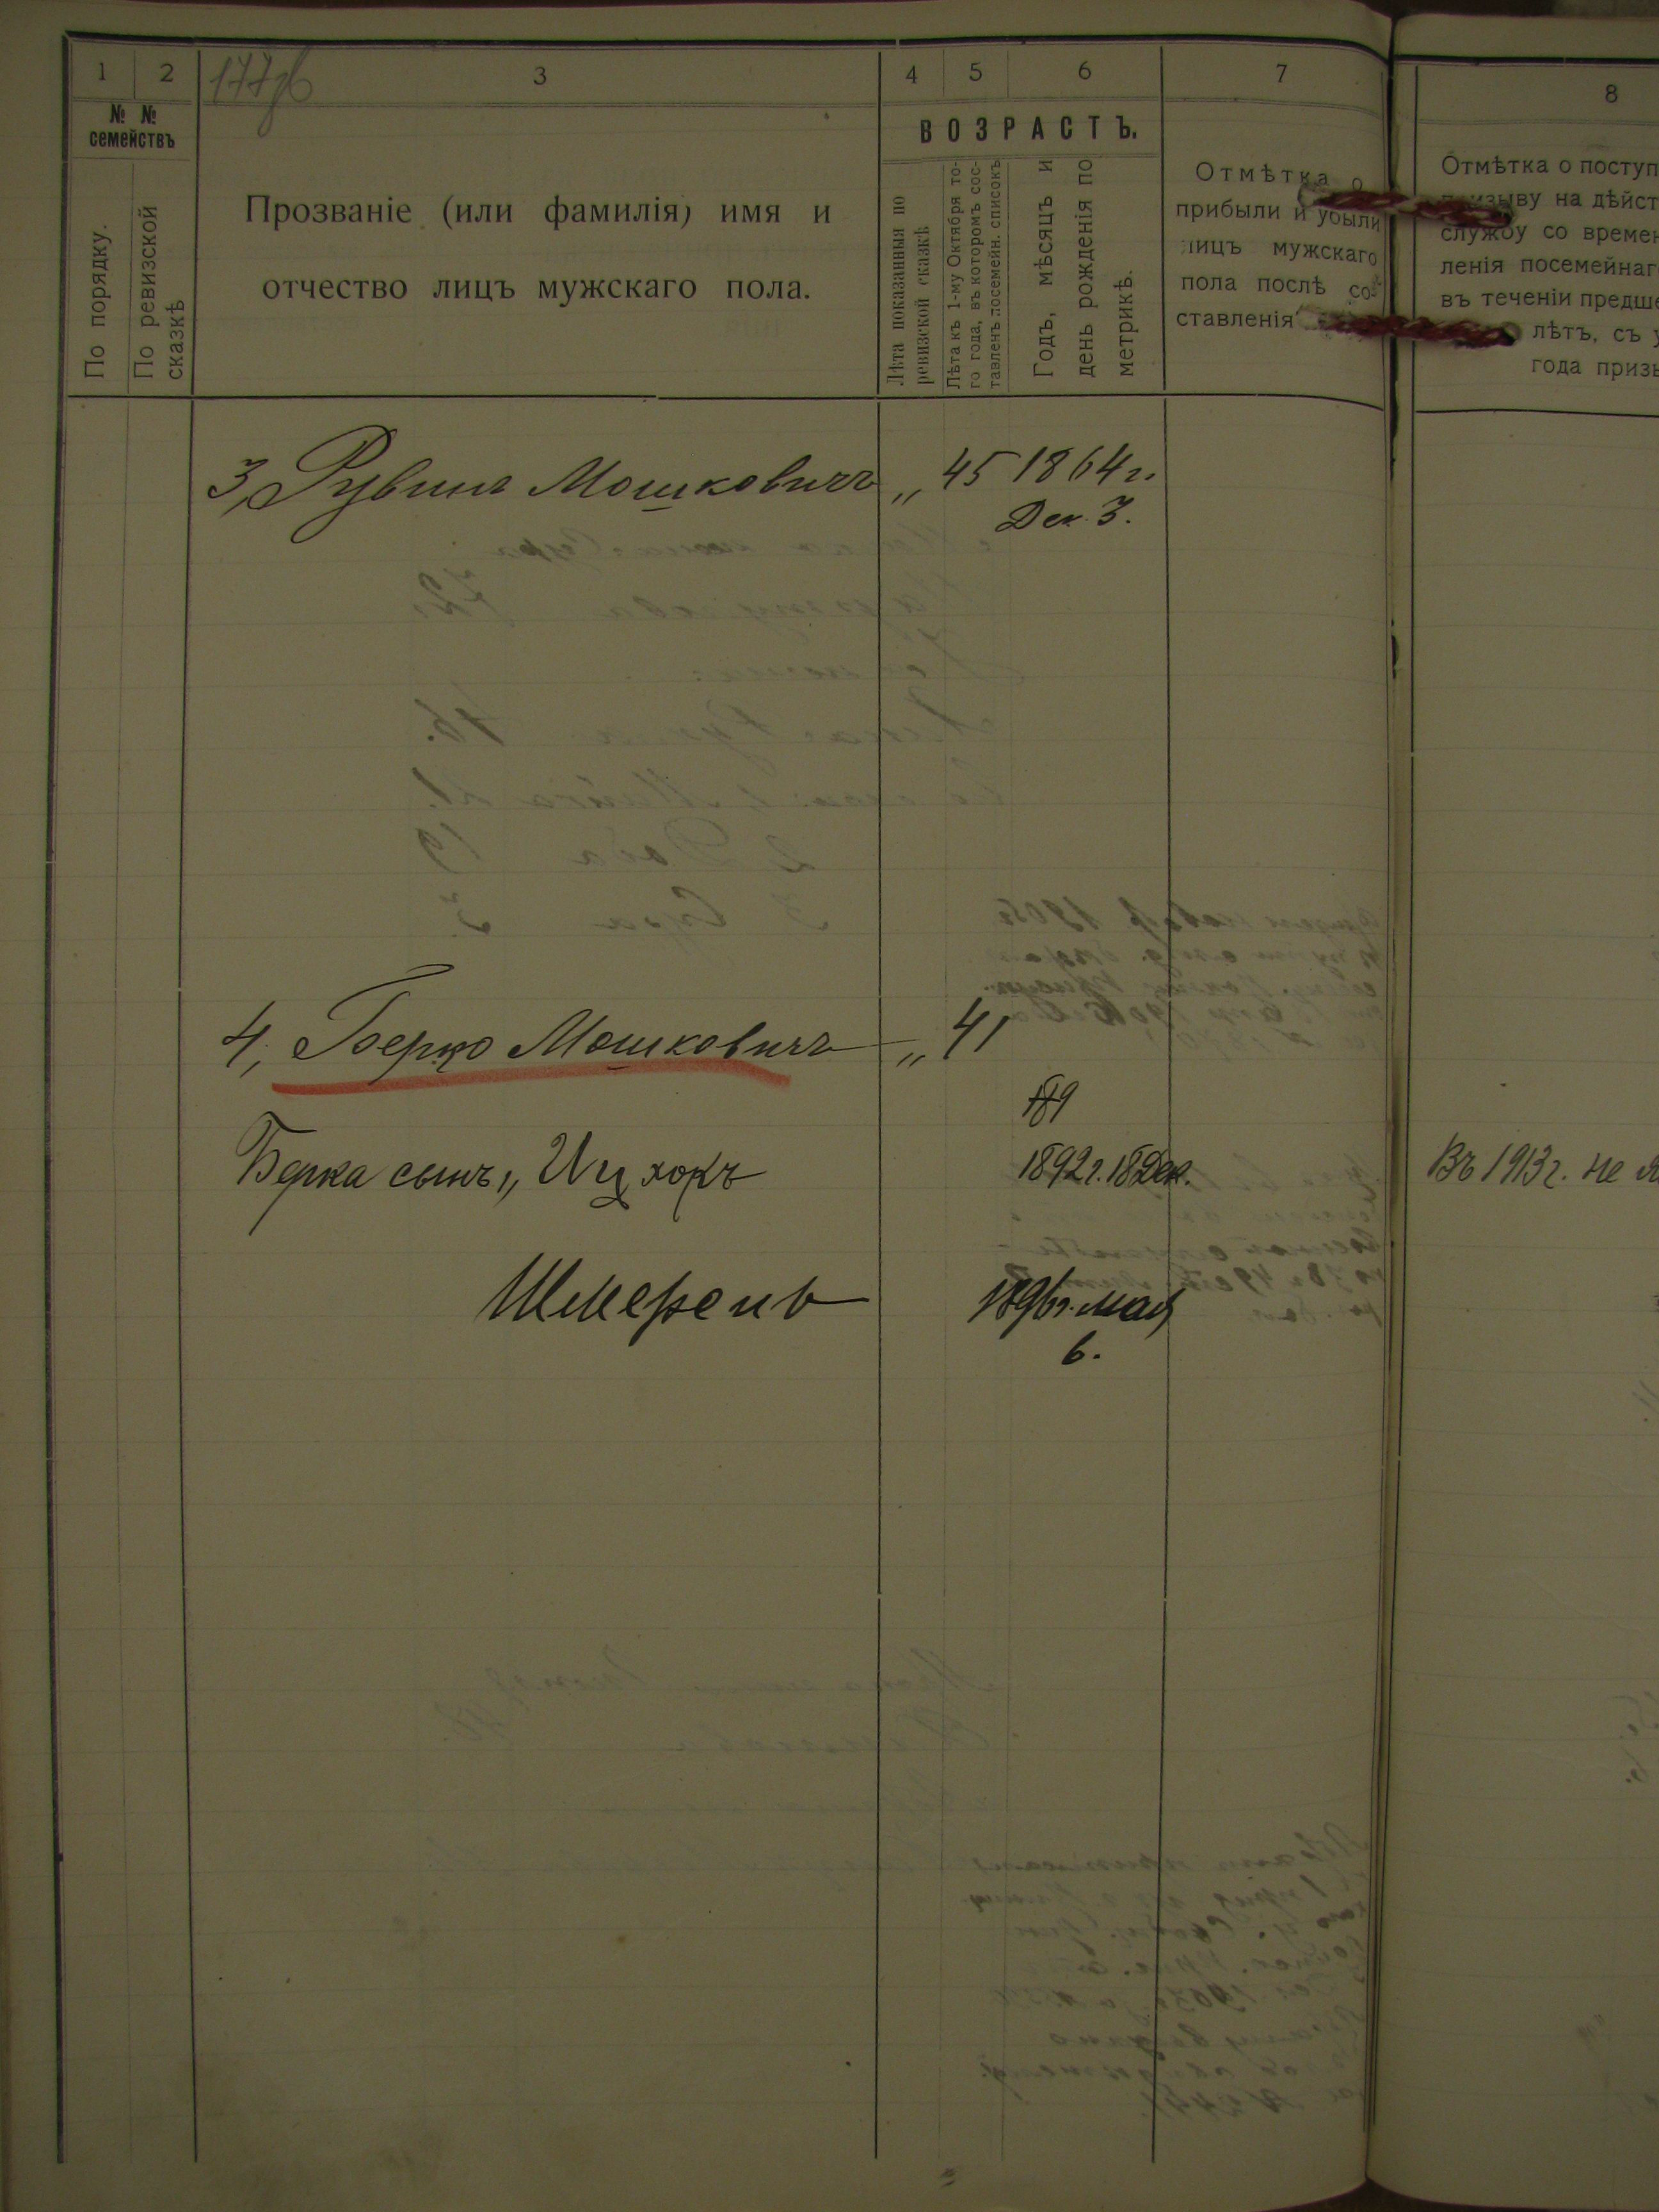 1 2 3 4 5 6 7 8
177об
№ № семействъ
По порядку.
По ревизской сказкѣ
Прозваніе (или фамилія) имя и
отчество лицъ мужскаго пола.
ВОЗРАСТЪ.
Лѣта показанныя по
ревизской сказкѣ
Лѣта къ 1-му Октября то-
го года, въ которомъ сос-
тавленъ посемейн. списокъ
Годъ, мѣсяцъ и
день рожденія по
метрикѣ.
Отмѣтка о
прибыли и убыли
лицъ мужскаго
пола послѣ со-
ставленія
Отмѣтка о поступ
призыву на дѣйст
службу со времен
ленія посемейнаг
въ теченіи предше
лѣтъ, съ у
года призы
3, Рувинъ Мошковичъ „ 45 1864 г.
Дек. 3.
4, Берко Мошковичъ „ 41
189
Берка сынъ „ Ицхокъ 1892 г. 18 Дек. Въ 1913 г. не я
Шмерель 1896 г. мая
6.